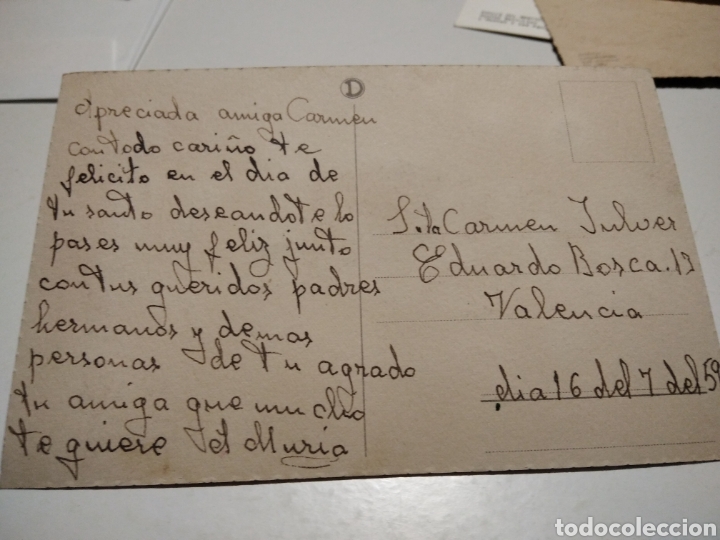 D
Apreciada amiga Carmen
con todo cariño te
felicito en el dia de
tu santo deseandote lo
pases muy feliz junto
con tus queridos padres
hermanos y demas
personas de tu agrado
tu amiga que mucho
te quiere
S.ta Carmen Julver
Eduardo Bosca. 13
Valencia
dia 16 del 7 del 59
todocoleccion